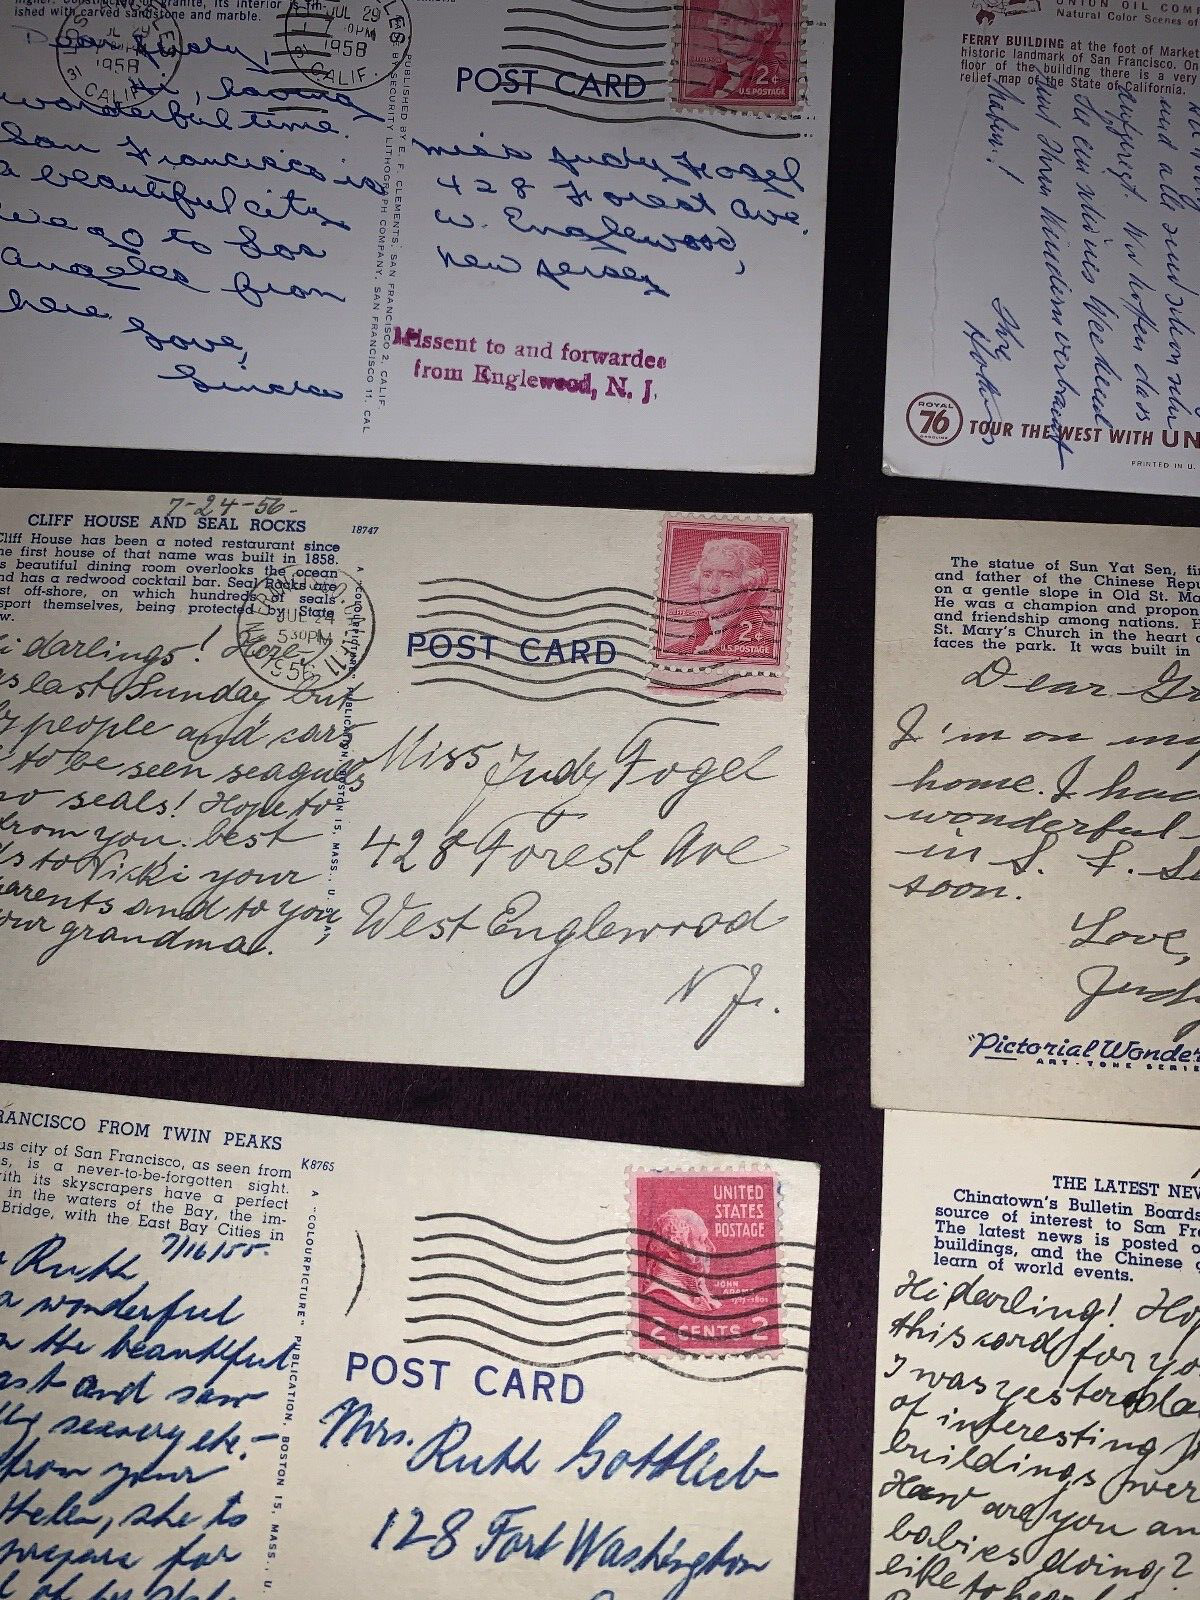 ished with carved sandstone and marble.
JUL 29
PM
1958
CALIF.
31
1958
CALIF
Dear Judy,
Hi, having
wonderful time.
San Francisco is
a beautiful city
we go to Los
Angeles from
here.
Love,
Linda
PUBLISHED BY E. F. CLEMENTS, SAN FRANCISCO 2, CALIF.
BY SECURITY LITHOGRAPH COMPANY, SAN FRANCISCO 11, CAL
POST CARD
2¢
U.S. POSTAGE
Miss Judy Fogel
428 Forest Ave.
W. Englewood,
New Jersey
Missent to and forwarded
from Englewood, N. J.
UNION OIL COMP
Natural Color Scenes of
FERRY BUILDING at the foot of Market
historic landmark of San Francisco. On
floor of the building there is a very
relief map of the State of California.
und alle sind schon sehr
Wir hoffen dass
Sie ein schönes Weekend
mit Ihren Kindern verbracht
haben!
Ihre
ROYAL
76
GASOLINE
TOUR THE WEST WITH UN
PRINTED IN U.
7-24-56-
CLIFF HOUSE AND SEAL ROCKS
18747
Cliff House has been a noted restaurant since
he first house of that name was built in 1858.
s beautiful dining room overlooks the ocean
nd has a redwood cocktail bar. Seal Rocks are
st off-shore, on which hundreds of seals
sport themselves, being protected by State
w.
JUL 24
5 30 PM
1956
i darlings! Here
as last Sunday but
y people and cars
to be seen seagulls
no seals! Hope to
from you. best
ds to Vicki your
parents and to you,
your grandma.
A "COLOURPICTURE" PUBLICATION, BOSTON 15, MASS., U. S. A.
POST CARD
2¢
U.S. POSTAGE
Miss Judy Fogel
428 Forest Ave
West Englewood
N. J.
The statue of Sun Yat Sen, fi
and father of the Chinese Repu
on a gentle slope in Old St. Ma
He was a champion and propon
and friendship among nations. H
St. Mary's Church in the heart
faces the park. It was built in
Dear Gr
I'm on my
home. I had
wonderful
in S. F. Se
soon.
Love,
Judy
"Pictorial Wonder
ART-TONE SERIE
RANCISCO FROM TWIN PEAKS
us city of San Francisco, as seen from
s, is a never-to-be-forgotten sight.
with its skyscrapers have a perfect
in the waters of the Bay, the im-
Bridge, with the East Bay Cities in
K8765
7/16/55.
Ruth
a wonderful
the beautiful
ast and saw
scenery etc.-
from your
Helen, she to
prepare for
A "COLOURPICTURE" PUBLICATION, BOSTON 15, MASS., U.
POST CARD
UNITED
STATES
POSTAGE
JOHN
ADAMS
1797-1801
2 CENTS 2
Mrs. Ruth Gottlieb
128 Fort Washington
THE LATEST NEW
Chinatown's Bulletin Boards
source of interest to San Fr
The latest news is posted o
buildings, and the Chinese g
learn of world events.
Hi darling! Hop
this card for yo
I was yesterda
of interesting
buildings over
How are you an
babies doing?
like to hear